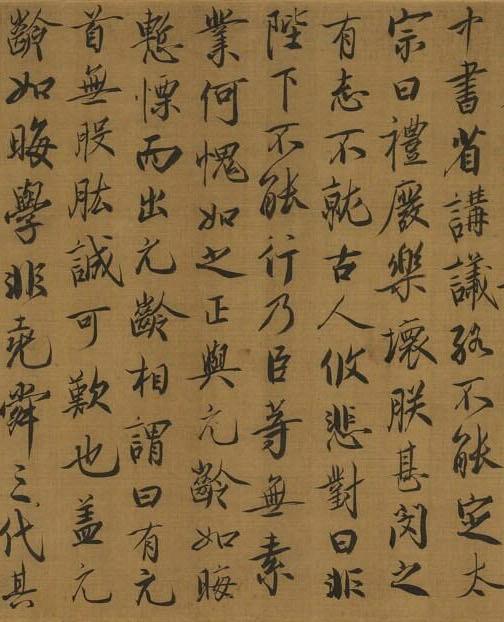 中書省講議終不能定太
宗曰禮廢樂壞朕甚閔之
有志不就古人攸悲對曰非
陛下不能行乃臣等無素
業何愧如之正與元齡如晦
慙慄而出元齡相謂曰有元
首無股肱誠可歎也蓋元
齡如晦學非堯舜三代其